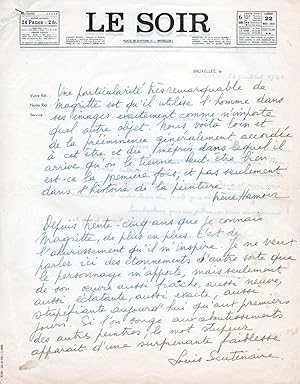 LE SOIR
24 PAGES - 2 fr.
22
BRUXELLES, le
Votre Réf.
Notre Réf.
Service
Une particularité très remarquable de
Magritte est qu'il utilise l'homme dans
ses images exactement comme n'importe
quel autre objet. Nous voilà loin et
de la prééminence généralement accordée
à cet être et du mépris dans lequel il
arrive qu'on le tienne. Peut-être bien
est-ce la première fois, et pas seulement
dans l'histoire de la peinture.
Irène Hamoir
Depuis trente-cinq ans que je connais
Magritte, de plus en plus. C'est de
l'ahurissement qu'il m'inspire. Je ne veux
parler ici des étonnements d'autre sorte que
le personnage m'apporte, mais seulement
de son œuvre aussi fraîche, aussi neuve,
aussi éclatante, aussi exacte, aussi
stupéfiante aujourd'hui qu'aux premiers
jours. Si l'on songe aux aboutissements
des autres peintres, le mot stupeur
apparaît d'une surprenante faiblesse.
Louis Scutenaire.